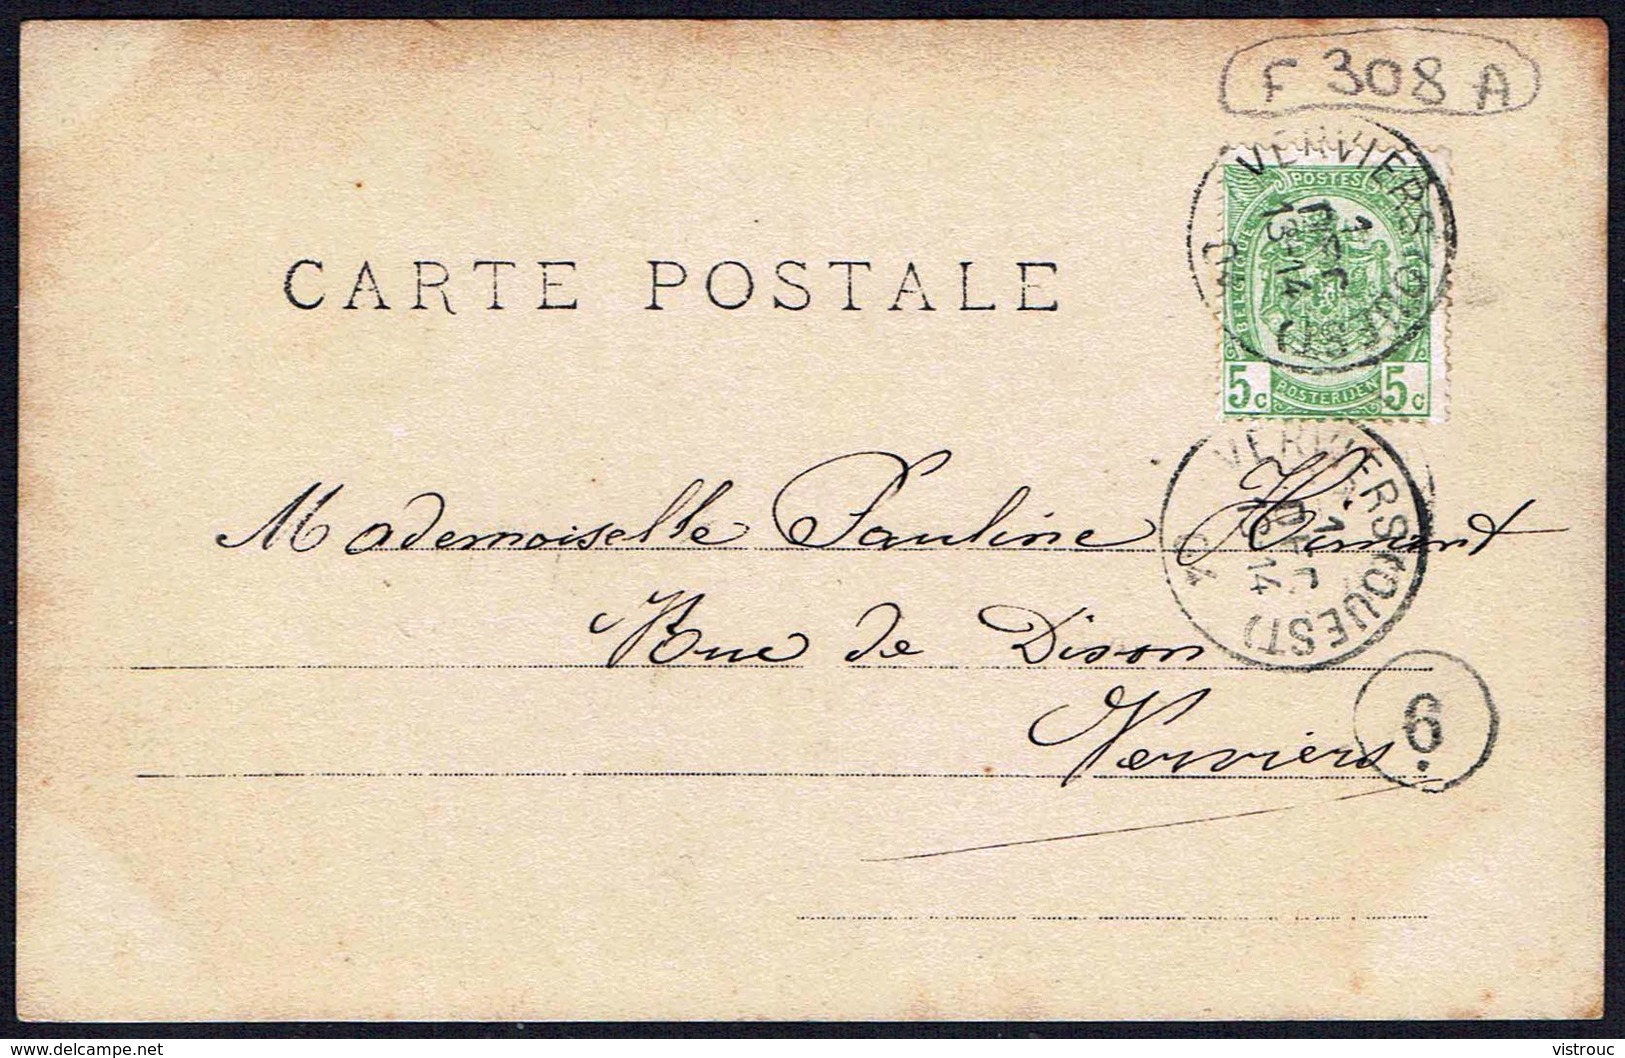 F 308 A
VERVIERS (OUEST)
1
DEC
13-14
POSTES
BELGIQUE
5c POSTERIJEN 5c
CARTE POSTALE
VERVIERS (OUEST)
1
DEC
14
Mademoiselle Pauline
Rue de Dison
Verviers
6
delcampe.net
vistrouc